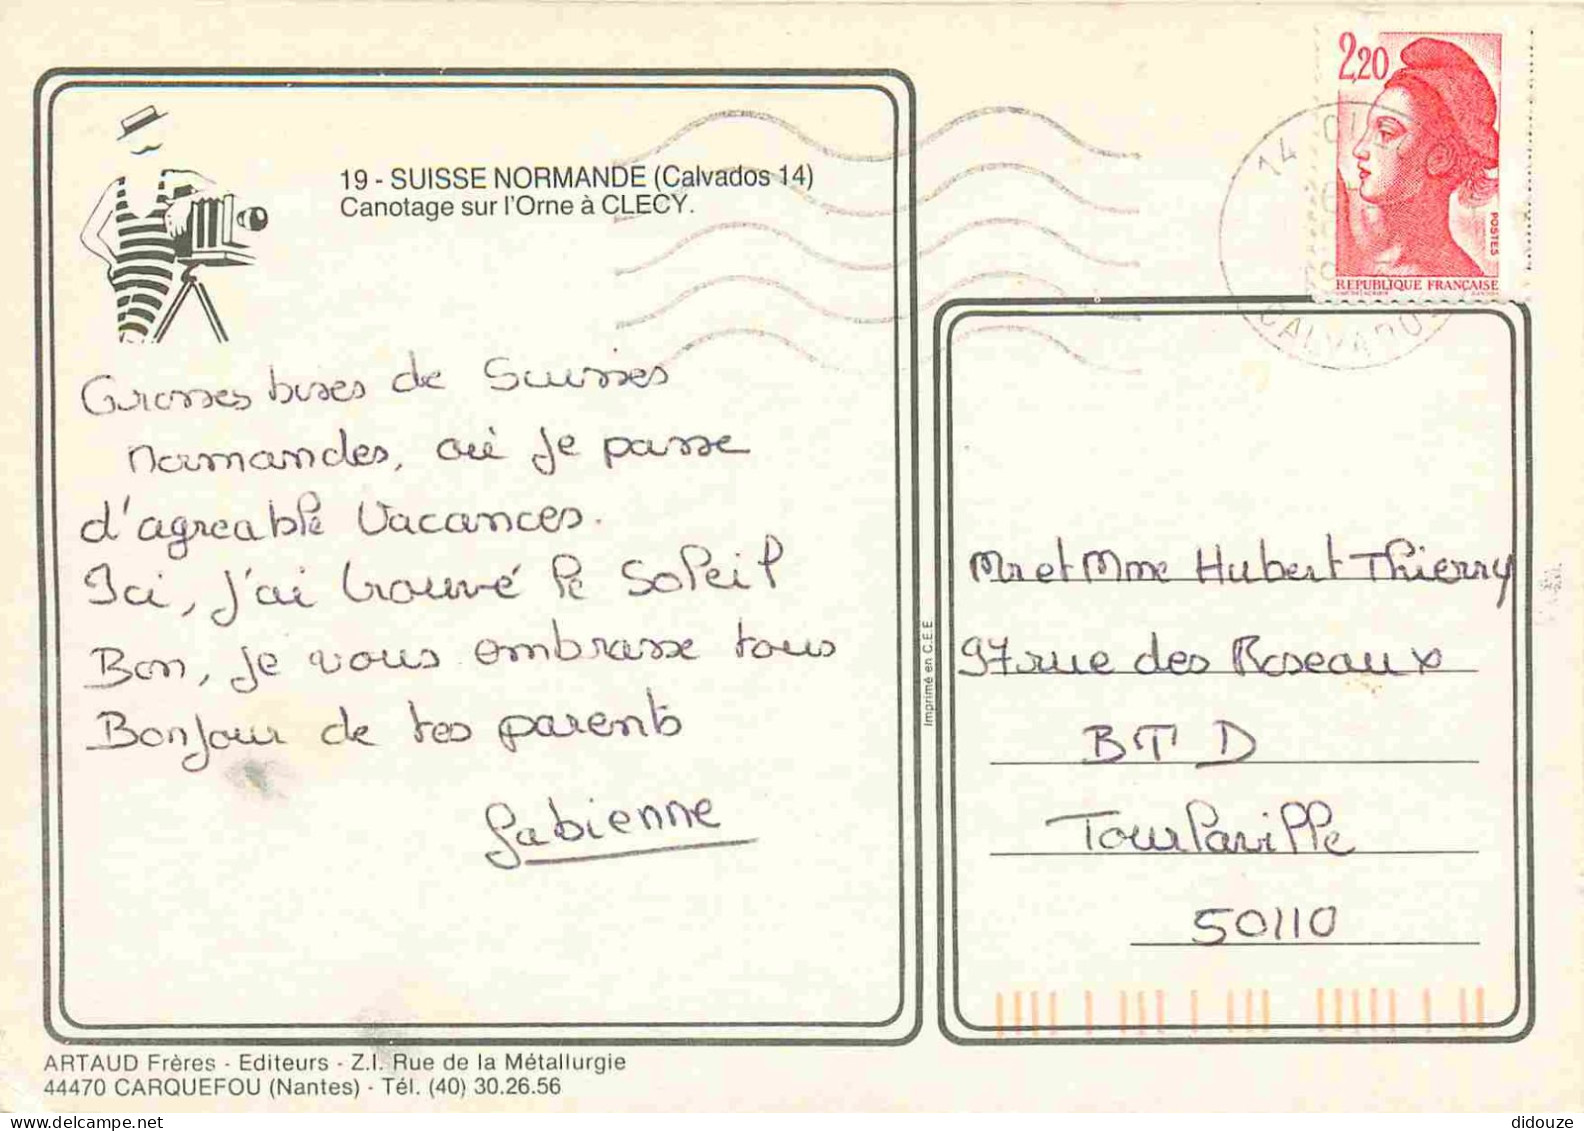 19 - SUISSE NORMANDE (Calvados 14)
Canotage sur l'Orne à CLECY.
Grosses bises de Suisses
normandes, où je passe
d'agreable Vacances.
Ici, j'ai trouvé le soleil
Bon, je vous embrasse tous
Bonjour de tes parents
Fabienne
2,20
POSTES
REPUBLIQUE FRANÇAISE
14
CALVADOS
Imprimé en C.E.E
Mr et Mme Hubert Thierry
97 rue des Roseaux
B T D
Tourlaville
50110
ARTAUD Frères - Editeurs - Z.I. Rue de la Métallurgie
44470 CARQUEFOU (Nantes) - Tél. (40) 30.26.56
didouze